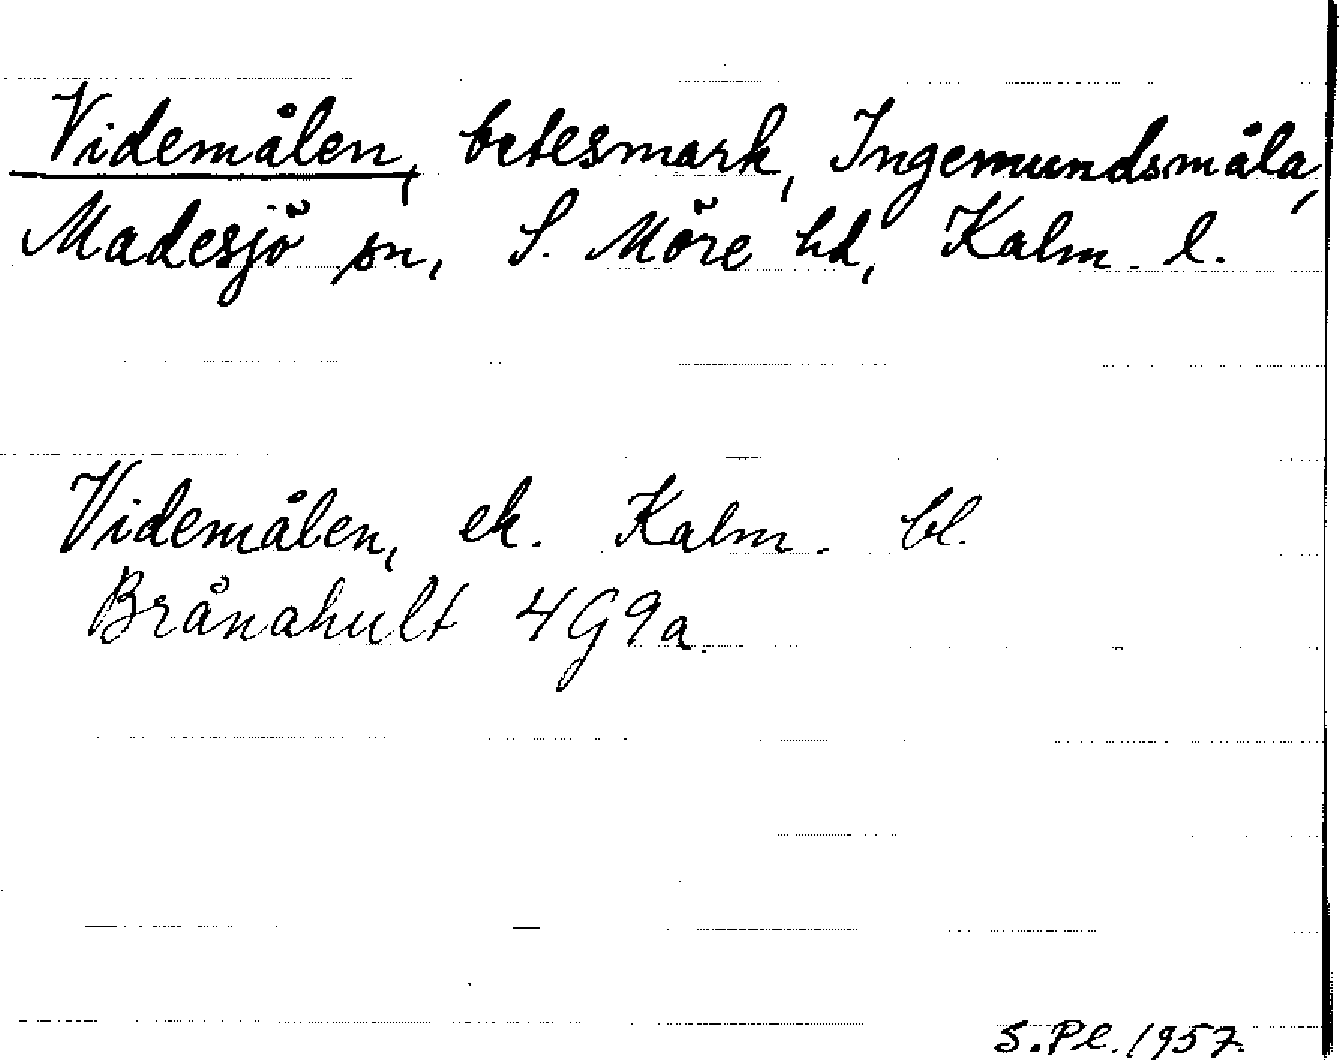 Videmålen, betesmark, Ingemundsmåla,
Madesjö sn, S. Möre hd, Kalm. l.
Videmålen, ek. Kalm. bl.
Brånahult 4G9a.
S.Pl.1957.